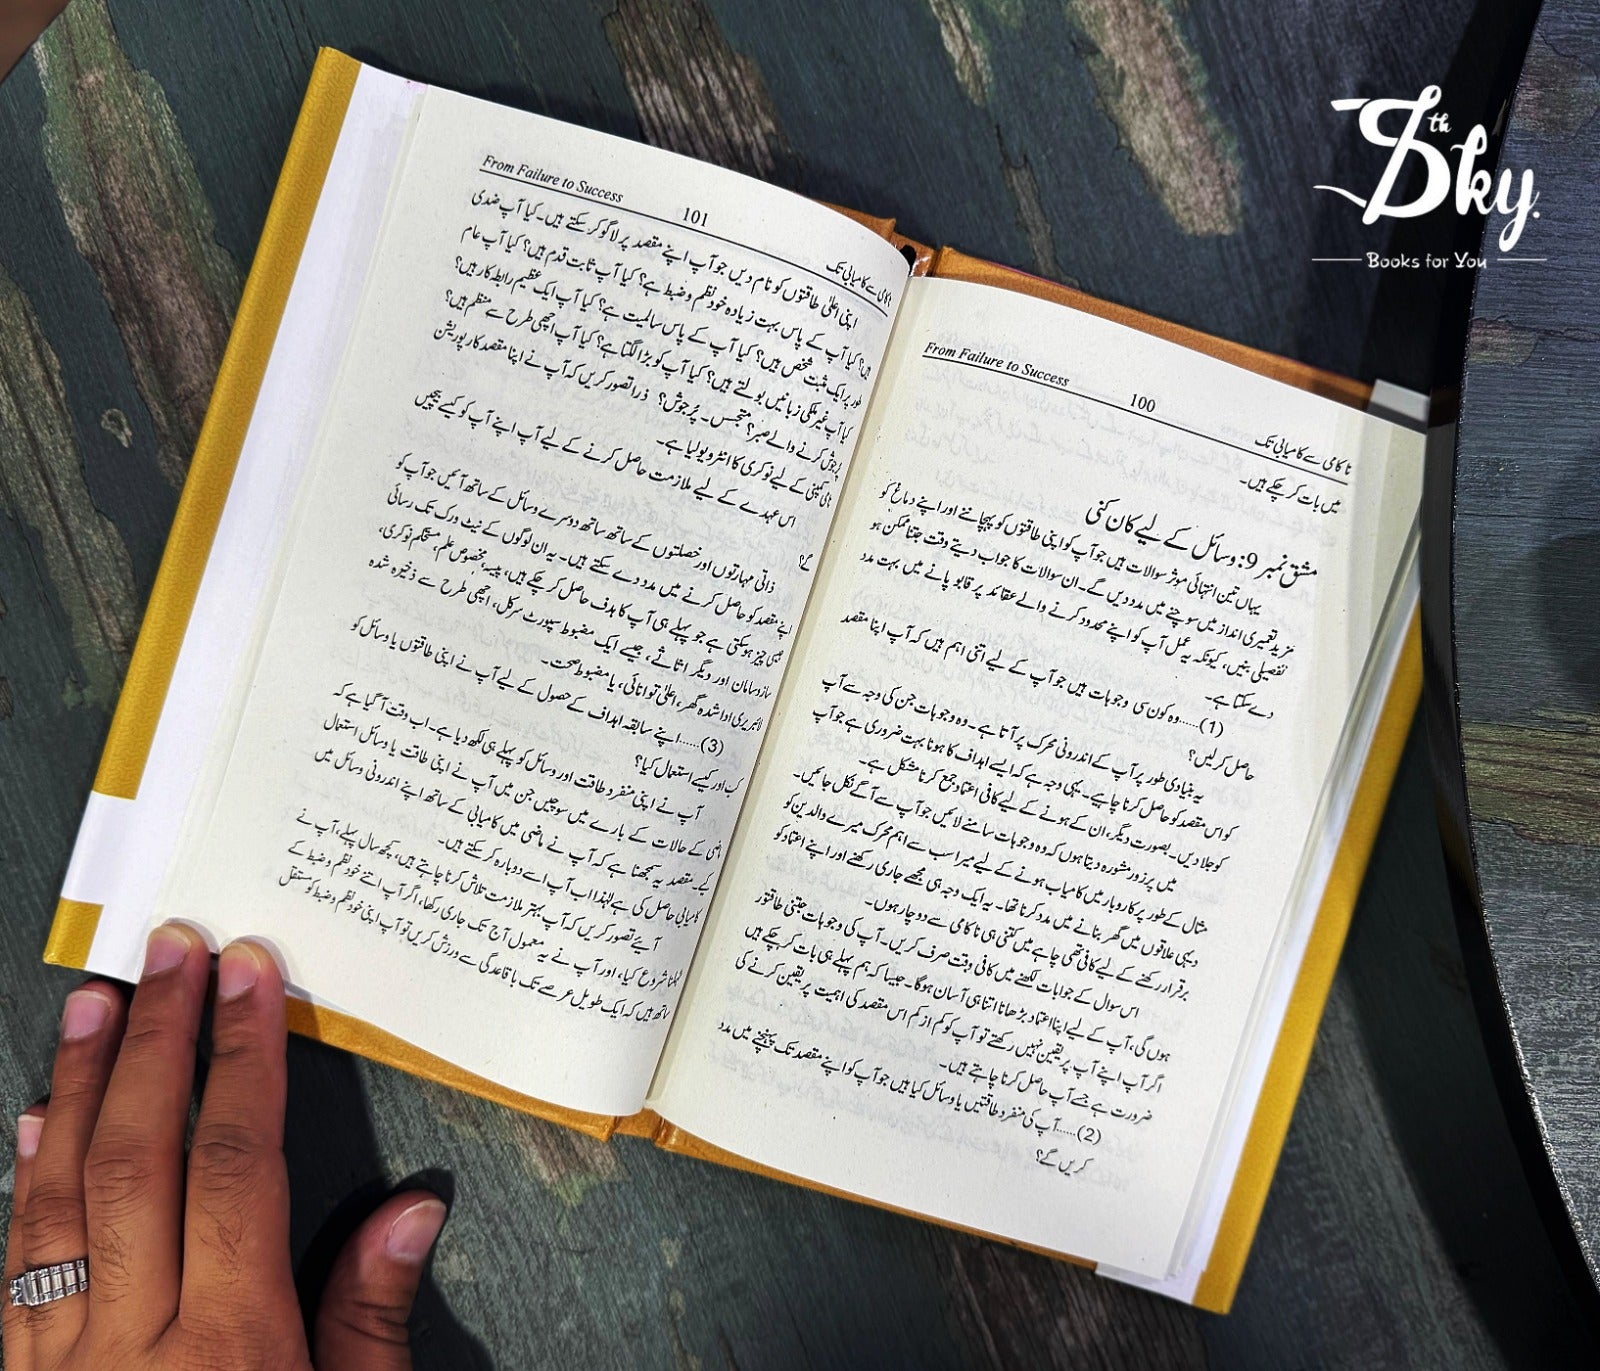 From Failure to Success 100 ناکامی سے کامیابی تک
میں بات کر چکے ہیں۔
مشق نمبر 9: وسائل کے لیے کان کنی
یہاں تین انتہائی موثر سوالات ہیں جو آپ کو اپنی طاقتوں کو پہچاننے اور اپنے دماغ کو
مزید تعمیری انداز میں سوچنے میں مدد دیں گے۔ ان سوالات کا جواب دیتے وقت جتنا ممکن ہو
تفصیلی بنیں، کیونکہ یہ عمل آپ کو اپنے محدود کرنے والے عقائد پر قابو پانے میں بہت مدد
دے سکتا ہے۔
(1)......وہ کون سی وجوہات ہیں جو آپ کے لیے اتنی اہم ہیں کہ آپ اپنا مقصد
حاصل کر لیں؟
یہ بنیادی طور پر آپ کے اندرونی محرک پر آتا ہے۔ وہ وجوہات جن کی وجہ سے آپ
کو اس مقصد کو حاصل کرنا چاہیے۔ یہی وجہ ہے کہ ایسے اہداف کا ہونا بہت ضروری ہے جو آپ
کو جلا دیں۔ بصورت دیگر، ان کے ہونے کے لیے کافی اعتماد جمع کرنا مشکل ہے۔
میں پر زور مشورہ دیتا ہوں کہ وہ وجوہات سامنے لائیں جو آپ سے آگے نکل جائیں۔
مثال کے طور پر کاروبار میں کامیاب ہونے کے لیے میرا سب سے اہم محرک میرے والدین کو
دیہی علاقوں میں گھر بنانے میں مدد کرنا تھا۔ یہ ایک وجہ ہی مجھے جاری رکھنے اور اپنے اعتماد کو
برقرار رکھنے کے لیے کافی تھی چاہے میں کتنی ہی ناکامی سے دوچار ہوں۔
اس سوال کے جوابات لکھنے میں کافی وقت صرف کریں۔ آپ کی وجوہات جتنی طاقتور
ہوں گی، آپ کے لیے اپنا اعتماد بڑھانا اتنا ہی آسان ہوگا۔ جیسا کہ ہم پہلے ہی بات کر چکے ہیں
اگر آپ اپنے آپ پر یقین نہیں رکھتے تو آپ کو کم از کم اس مقصد کی اہمیت پر یقین کرنے کی
ضرورت ہے جسے آپ حاصل کرنا چاہتے ہیں۔
(2)......آپ کی منفرد طاقتیں یا وسائل کیا ہیں جو آپ کو اپنے مقصد تک پہنچنے میں مدد
کریں گے؟
From Failure to Success 101 ناکامی سے کامیابی تک
اپنی اعلیٰ طاقتوں کو نام دیں جو آپ اپنے مقصد پر لاگو کر سکتے ہیں۔ کیا آپ ضدی
ہیں؟ کیا آپ کے پاس بہت زیادہ خود نظم و ضبط ہے؟ کیا آپ ثابت قدم ہیں؟ کیا آپ عام
طور پر ایک مثبت شخص ہیں؟ کیا آپ کے پاس سالمیت ہے؟ کیا آپ ایک عظیم رابطہ کار ہیں؟
کیا آپ غیر ملکی زبانیں بولتے ہیں؟ کیا آپ کو بڑا لگتا ہے؟ کیا آپ اچھی طرح سے منظم ہیں؟
پُرجوش کرنے والے صبر؟ متجسس۔ پُرجوش؟ ذرا تصور کریں کہ آپ نے اپنا مقصد کارپوریشن
نامی کمپنی کے لیے نوکری کا انٹرویو لیا ہے۔
اس عہدے کے لیے ملازمت حاصل کرنے کے لیے آپ اپنے آپ کو کیسے بیچیں
گے؟
ذاتی مہارتوں اور خصلتوں کے ساتھ ساتھ دوسرے وسائل کے ساتھ آئیں جو آپ کو
اپنے مقصد کو حاصل کرنے میں مدد دے سکتے ہیں۔ یہ ان لوگوں کے نیٹ ورک تک رسائی
جیسی چیز ہو سکتی ہے جو پہلے ہی آپ کا ہدف حاصل کر چکے ہیں، پیسہ، مخصوص علم، مستحکم نوکری،
سازوسامان اور دیگر اثاثے، جیسے ایک مضبوط سپورٹ سرکل، اچھی طرح سے ذخیرہ شدہ
لائبریری ادا شدہ گھر، اعلیٰ توانائی، یا مضبوط صحت۔
(3)......اپنے سابقہ اہداف کے حصول کے لیے آپ نے اپنی طاقتوں یا وسائل کو
کب اور کیسے استعمال کیا؟
آپ نے اپنی منفرد طاقت اور وسائل کو پہلے ہی لکھ دیا ہے۔ اب وقت آگیا ہے کہ
ماضی کے حالات کے بارے میں سوچیں جن میں آپ نے اپنی طاقت یا وسائل استعمال
کیے۔ مقصد یہ سمجھنا ہے کہ آپ نے ماضی میں کامیابی کے ساتھ اپنے اندرونی وسائل میں
کامیابی حاصل کی ہے لہٰذا اب آپ اسے دوبارہ کر سکتے ہیں۔
آیئے تصور کریں کہ آپ بہتر ملازمت تلاش کرنا چاہتے ہیں، کچھ سال پہلے، آپ نے
ٹہلنا شروع کیا، اور آپ نے یہ معمول آج تک جاری رکھا، اگر آپ اتنے خود نظم و ضبط کے
ساتھ ہیں کہ ایک طویل عرصے تک باقاعدگی سے ورزش کریں تو آپ اپنی خود نظم و ضبط کو مستقل
8th Sky.
Books for You